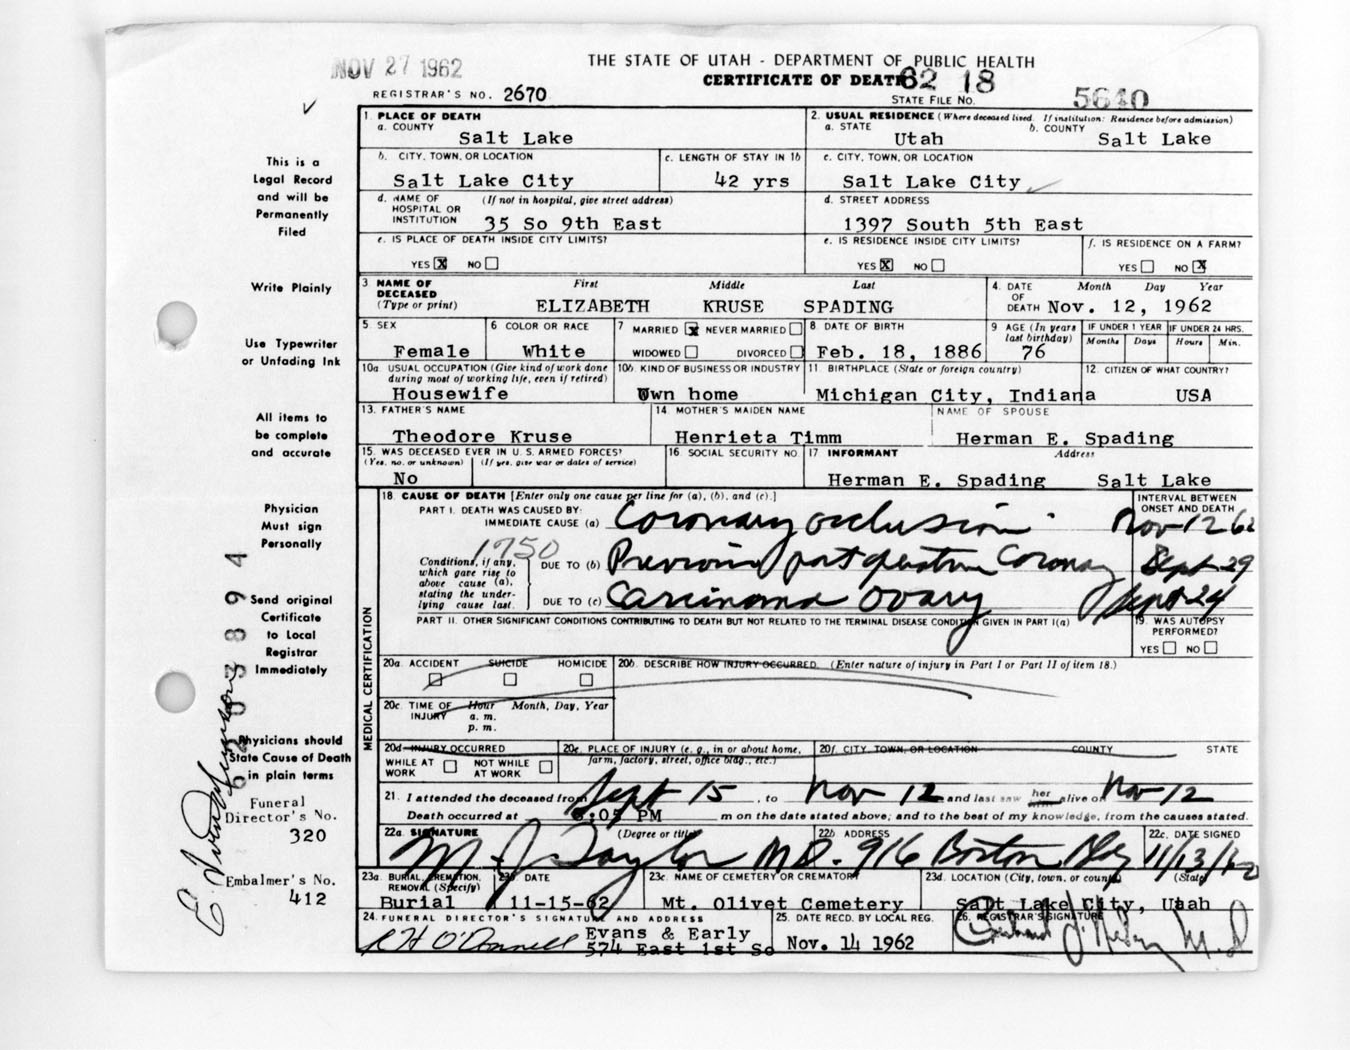 NOV 27 1962
THE STATE OF UTAH - DEPARTMENT OF PUBLIC HEALTH
CERTIFICATE OF DEATH 62 18
REGISTRAR'S NO. 2670
STATE FILE NO. 5640
1. PLACE OF DEATH
a. COUNTY
Salt Lake
2. USUAL RESIDENCE (Where deceased lived. If institution: Residence before admission)
a. STATE b. COUNTY
Utah Salt Lake
b. CITY, TOWN, OR LOCATION c. LENGTH OF STAY IN 1b c. CITY, TOWN, OR LOCATION
Salt Lake City 42 yrs Salt Lake City
d. NAME OF HOSPITAL OR INSTITUTION (If not in hospital, give street address)
35 So 9th East
d. STREET ADDRESS
1397 South 5th East
e. IS PLACE OF DEATH INSIDE CITY LIMITS?
YES X NO
e. IS RESIDENCE INSIDE CITY LIMITS?
YES X NO
f. IS RESIDENCE ON A FARM?
YES NO X
3 NAME OF DECEASED (Type or print) First Middle Last
ELIZABETH KRUSE SPADING
4. DATE OF DEATH Month Day Year
Nov. 12, 1962
5 SEX 6 COLOR OR RACE 7 MARRIED X NEVER MARRIED WIDOWED DIVORCED
Female White
8 DATE OF BIRTH
Feb. 18, 1886
9 AGE (In years last birthday)
76
IF UNDER 1 YEAR IF UNDER 24 HRS.
Months Days Hours Min.
10a. USUAL OCCUPATION (Give kind of work done during most of working life, even if retired)
Housewife
10b. KIND OF BUSINESS OR INDUSTRY
Own home
11. BIRTHPLACE (State or foreign country)
Michigan City, Indiana
12. CITIZEN OF WHAT COUNTRY?
USA
13. FATHER'S NAME 14 MOTHER'S MAIDEN NAME NAME OF SPOUSE
Theodore Kruse Henrieta Timm Herman E. Spading
15. WAS DECEASED EVER IN U. S. ARMED FORCES?
(Yes, no, or unknown) (If yes, give war or dates of service)
No
16. SOCIAL SECURITY NO. 17. INFORMANT Address
Herman E. Spading Salt Lake
MEDICAL CERTIFICATION
18. CAUSE OF DEATH [Enter only one cause per line for (a), (b), and (c).]
INTERVAL BETWEEN ONSET AND DEATH
PART I. DEATH WAS CAUSED BY:
IMMEDIATE CAUSE (a) Coronary occlusion Nov-12 62
1750
Conditions, if any, which gave rise to above cause (a), stating the underlying cause last.
DUE TO (b) Previous Coronary Sept-29
DUE TO (c) Carcinoma ovary Sept-24
PART II. OTHER SIGNIFICANT CONDITIONS CONTRIBUTING TO DEATH BUT NOT RELATED TO THE TERMINAL DISEASE CONDITION GIVEN IN PART I(a)
19. WAS AUTOPSY PERFORMED?
YES NO
20a. ACCIDENT SUICIDE HOMICIDE
20b. DESCRIBE HOW INJURY OCCURRED. (Enter nature of injury in Part I or Part II of item 18.)
20c. TIME OF INJURY Hour Month, Day, Year
a. m.
p. m.
20d INJURY OCCURRED
WHILE AT WORK NOT WHILE AT WORK
20e. PLACE OF INJURY (e. g., in or about home, farm, factory, street, office bldg., etc.)
20f. CITY, TOWN, OR LOCATION COUNTY STATE
21. I attended the deceased from Sept 15, to Nov 12 and last saw her alive on Nov-12
Death occurred at 6:05 PM m on the date stated above; and to the best of my knowledge, from the causes stated.
22a. SIGNATURE (Degree or title) 22b ADDRESS 22c. DATE SIGNED
M. J. Taylor M.D. 916 Boston Bldg 11/13/62
23a. BURIAL, CREMATION, REMOVAL (Specify) 23b. DATE 23c. NAME OF CEMETERY OR CREMATORY 23d. LOCATION (City, town, or county) (State)
Burial 11-15-62 Mt. Olivet Cemetery Salt Lake City, Utah
24. FUNERAL DIRECTOR'S SIGNATURE AND ADDRESS 25. DATE RECD. BY LOCAL REG. 26. REGISTRAR'S SIGNATURE
R H O'Donnell Evans & Early
574 East 1st So
Nov. 14 1962
M.D
This is a
Legal Record
and will be
Permanently
Filed
Write Plainly
Use Typewriter
or Unfading Ink
All items to
be complete
and accurate
Physician
Must sign
Personally
Send original
Certificate
to Local
Registrar
Immediately
Physicians should
State Cause of Death
in plain terms
Funeral
Director's No.
320
Embalmer's No.
412